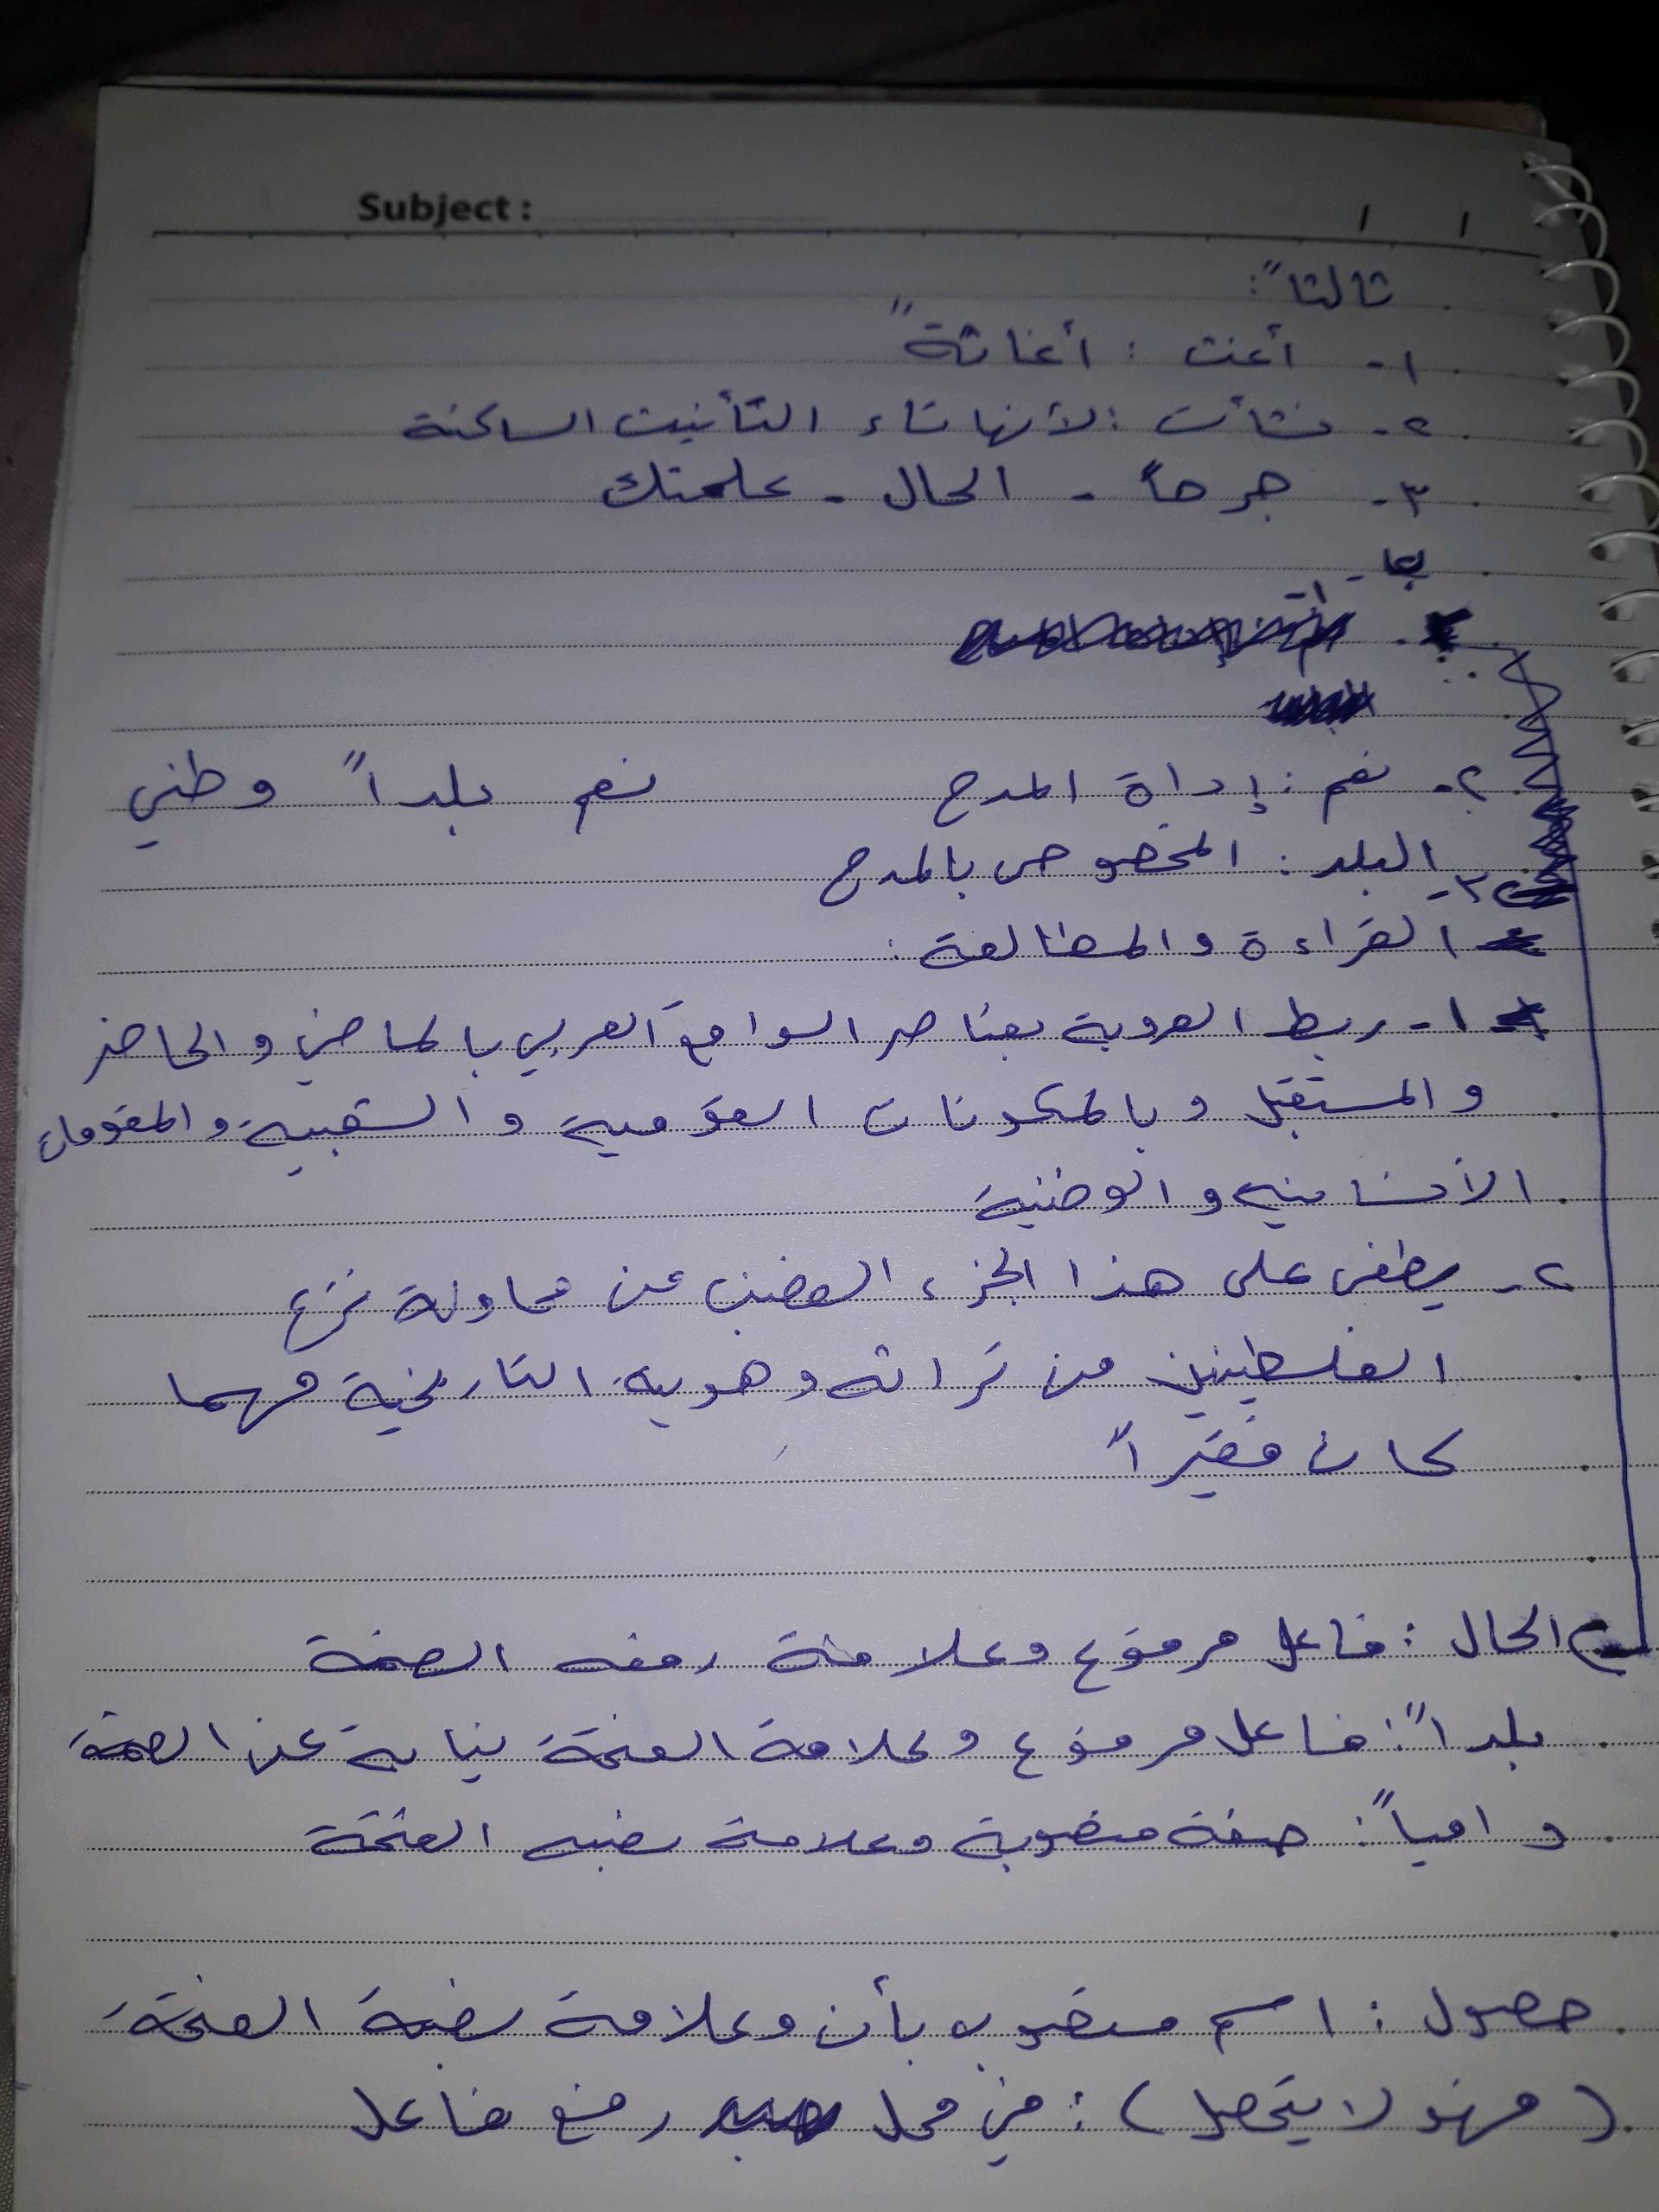 Subject:
/ /
ثالثا ً:
١- أعنت : أغاثة ً
٢- نشأت : لأنها تاء التأنيث الساكنة
٣- جرحاً - الحال - علمتك
٢- نعم : إداة المدح نعم بلدا ً وطني
٣- البلد : المخصوص بالمدح
القراءة والمطالعة :
١- ربط العروبة بعناصر الواقع العربي بالماضي والحاضر
والمستقبل وبالمكونات القومية والشعبية والمقومات
الأنسانيه والوطنية
٢- يطغى على هذا الجزء الغضب عن محاولة نزع
الفلسطينين من تراثه وهويه التاريخية مهما
كان فقيرا ً
الحال : فاعل مرفوع وعلامة رفعه الضمة
بلدا ً : فاعل مرفوع وعلامة الفتحة نيابة عن الضمة
وافيا ً : صفة منصوبة وعلامة نصبه الفتحة
حصول : اسم منصوب بأن وعلامة نصبة الفتحة
(فهو لا يتحصل) : في محل رفع فاعل